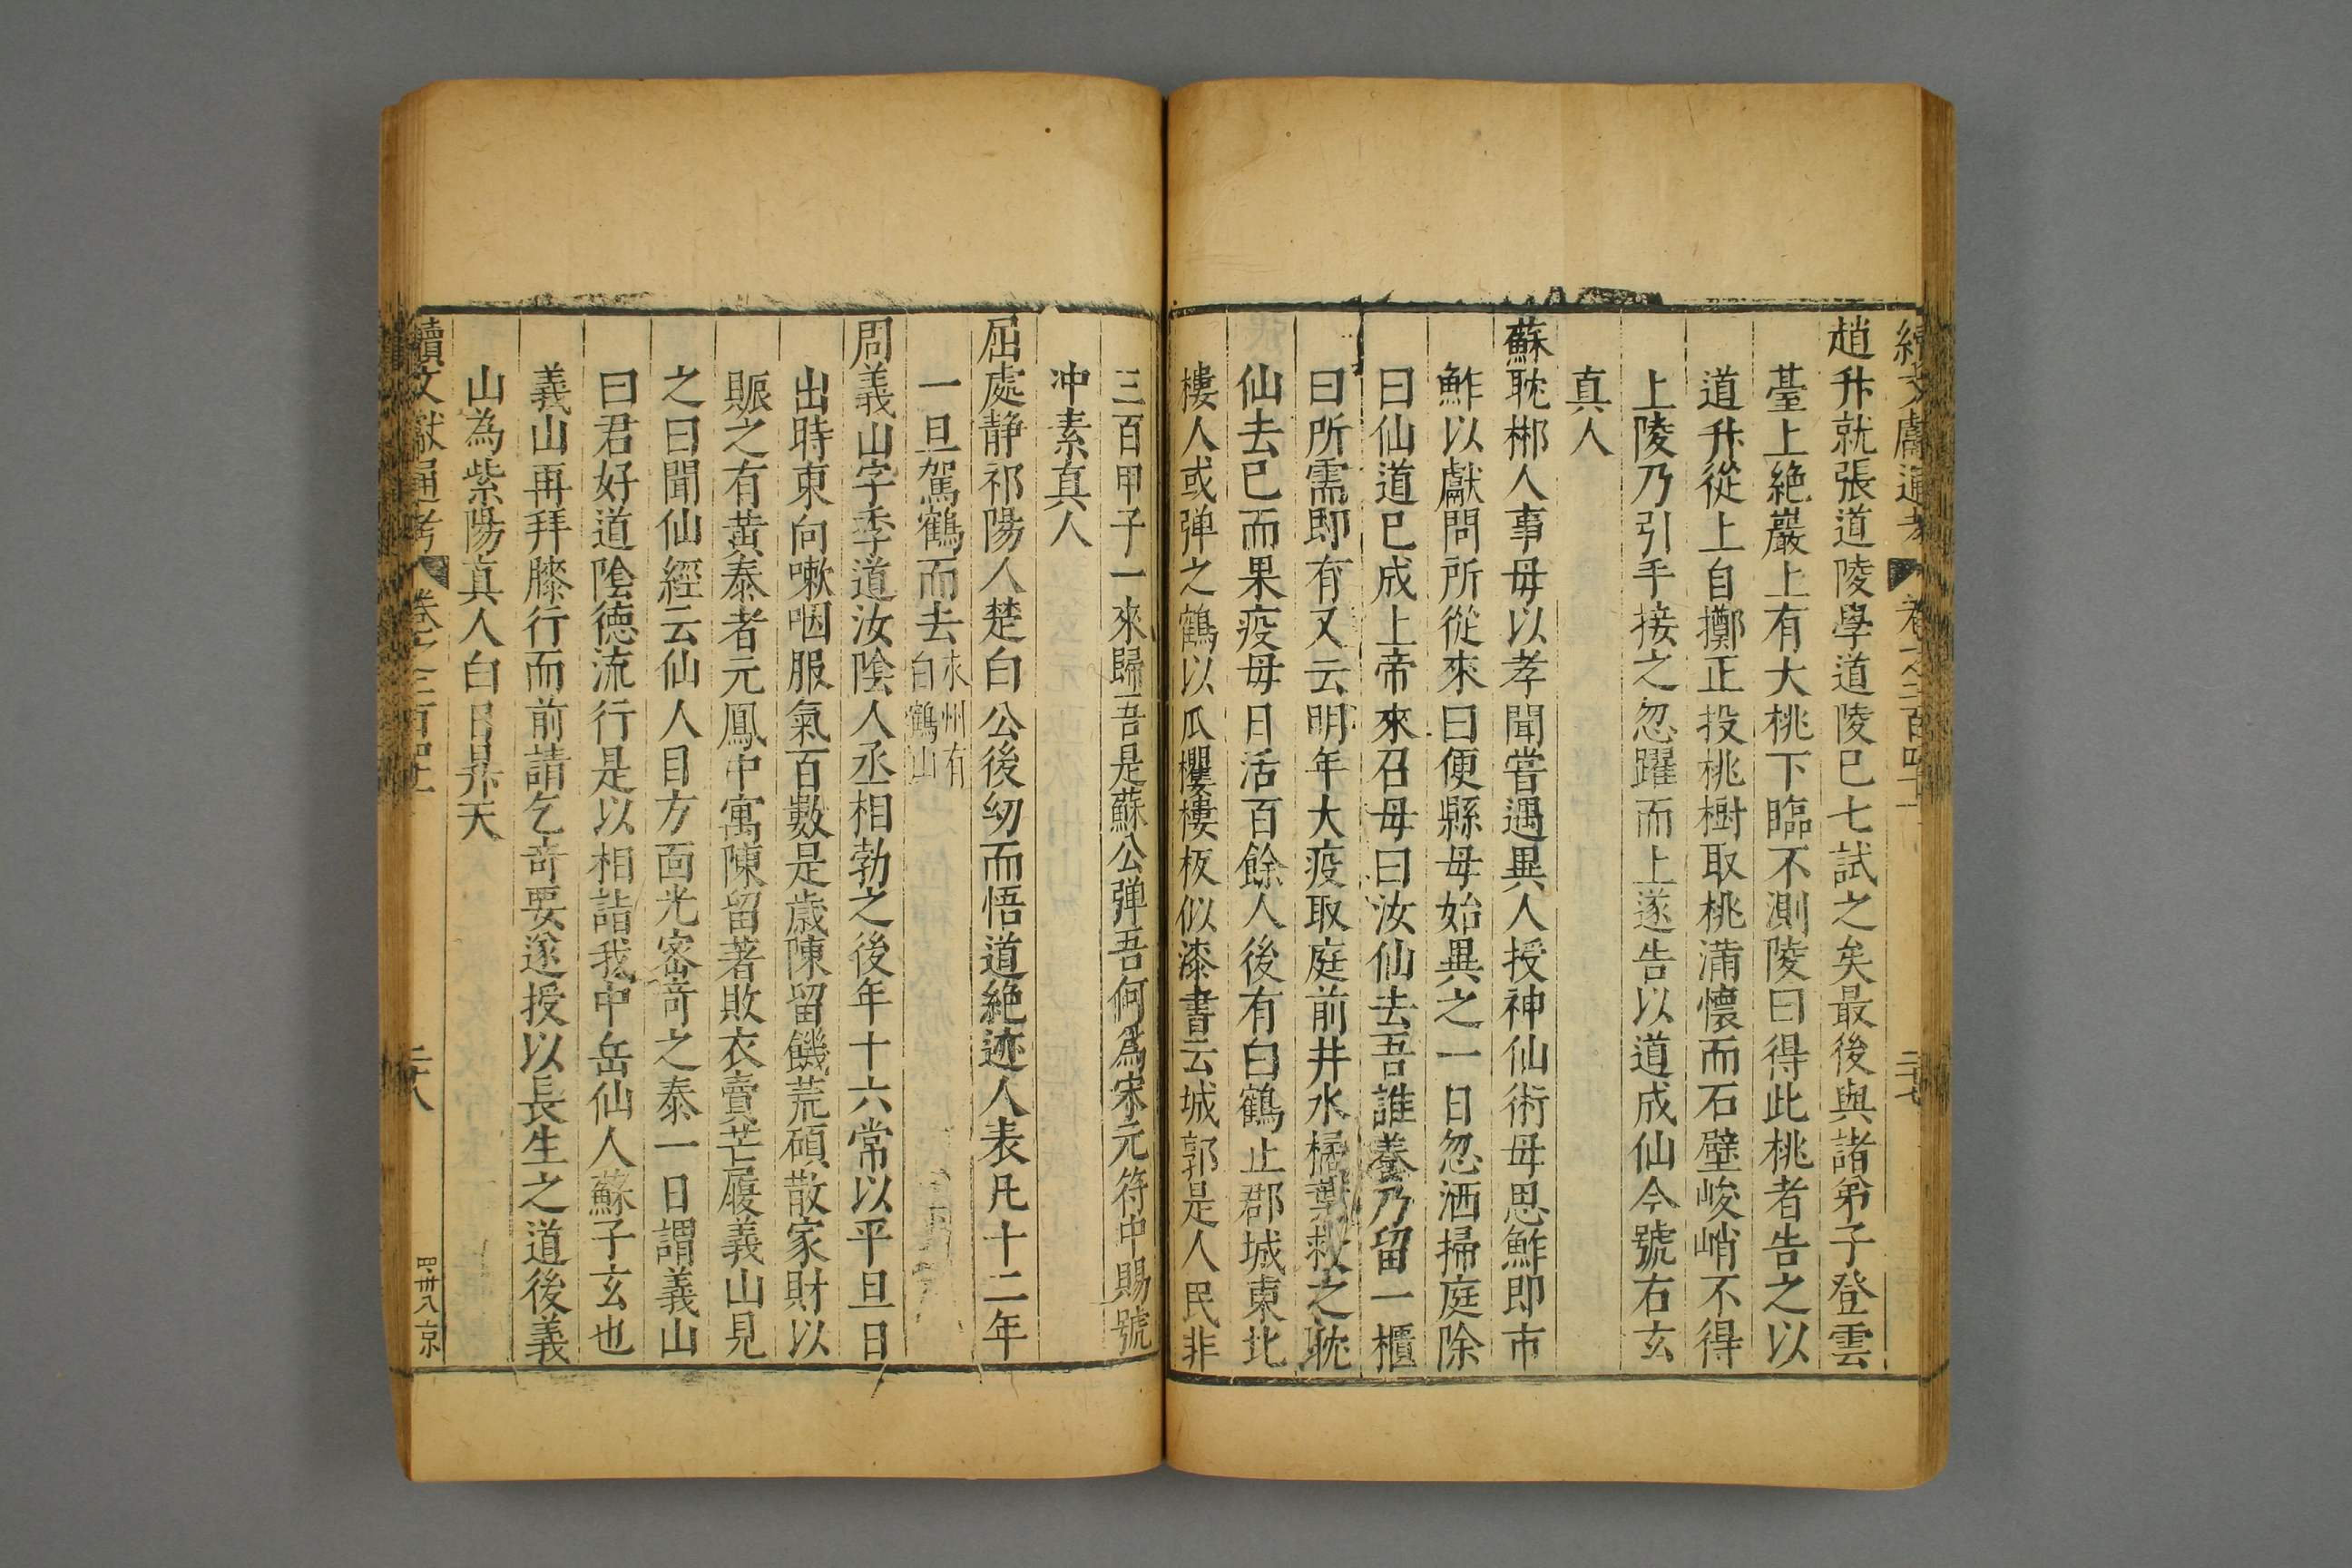 續文獻通考 卷之二百四十一 三十七
趙升就張道陵學道陵已七試之矣最後與諸弟子登雲
臺上絶巖上有大桃下臨不測陵曰得此桃者告之以
道升從上自擲正投桃樹取桃滿懷而石壁峻峭不得
上陵乃引手接之忽躍而上遂告以道成仙今號右玄
真人
蘇耽郴人事母以孝聞嘗遇異人授神仙術母思鮓即市
鮓以獻問所從來曰便縣母始異之一日忽洒掃庭除
曰仙道已成上帝來召母曰汝仙去吾誰養乃留一櫃
曰所需即有又云明年大疫取庭前井水橘葉救之耽
仙去已而果疫母日活百餘人後有白鶴止郡城東北
樓人或弹之鶴以爪攫樓板似漆書云城郭是人民非
三百甲子一來歸吾是蘇公弹吾何爲宋元符中賜號
冲素真人
屈處静祁陽人楚白公後幼而悟道絶迹人表凡十二年
一旦駕鶴而去永州有白鶴山
周義山字季道汝陰人丞相勃之後年十六常以平旦日
出時東向嗽咽服氣百數是歳陳留饑荒碩散家財以
賑之有黄泰者元鳳中寓陳留著敗衣賣芒履義山見
之曰聞仙經云仙人目方面光密竒之泰一日謂義山
曰君好道陰德流行是以相詣我中岳仙人蘇子玄也
義山再拜膝行而前請乞竒要遂授以長生之道後義
山為紫陽真人白日昇天
續文獻通考 卷之二百四十一 三十八 四卅八京